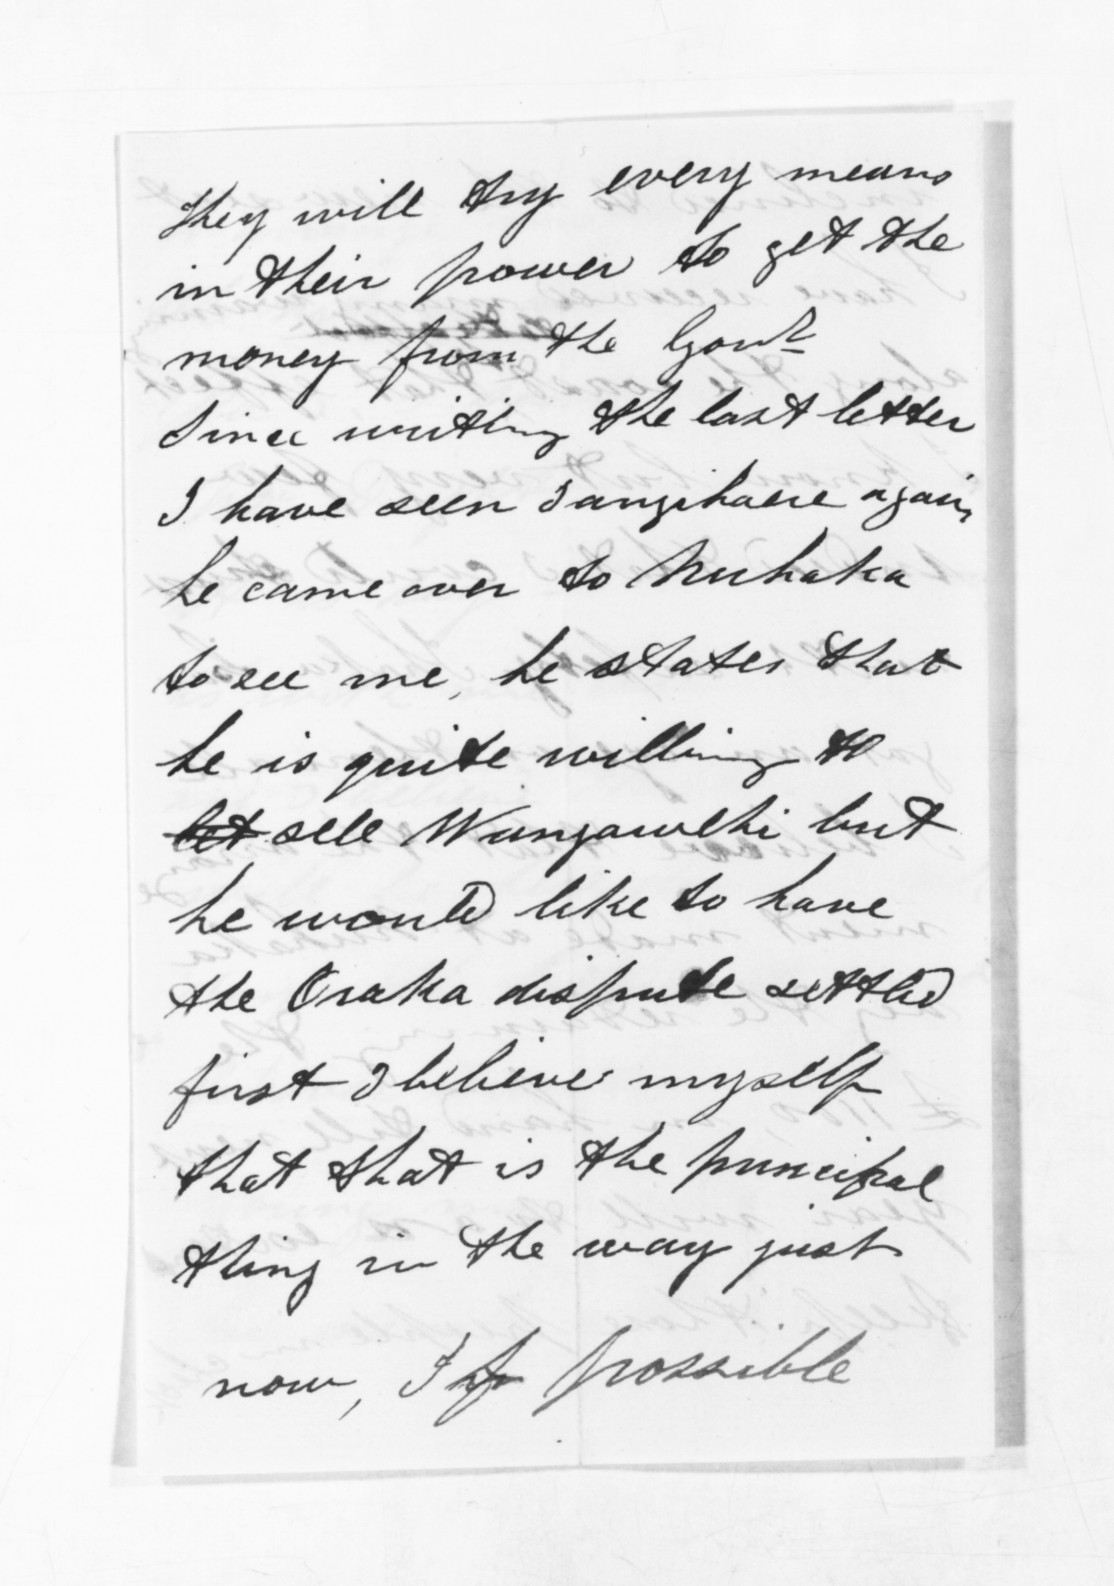 they will try every means
in their power to get the
money from the Govt
Since writing the last letter
I have seen Tangihaere again,
he came over to Nuhaka
to see me, he states that
he is quite willing to
let sell Wangawehi but
he would like to have
the Oraka dispute settled
first I believe myself
that that is the principal
thing in the way just
now, If possible